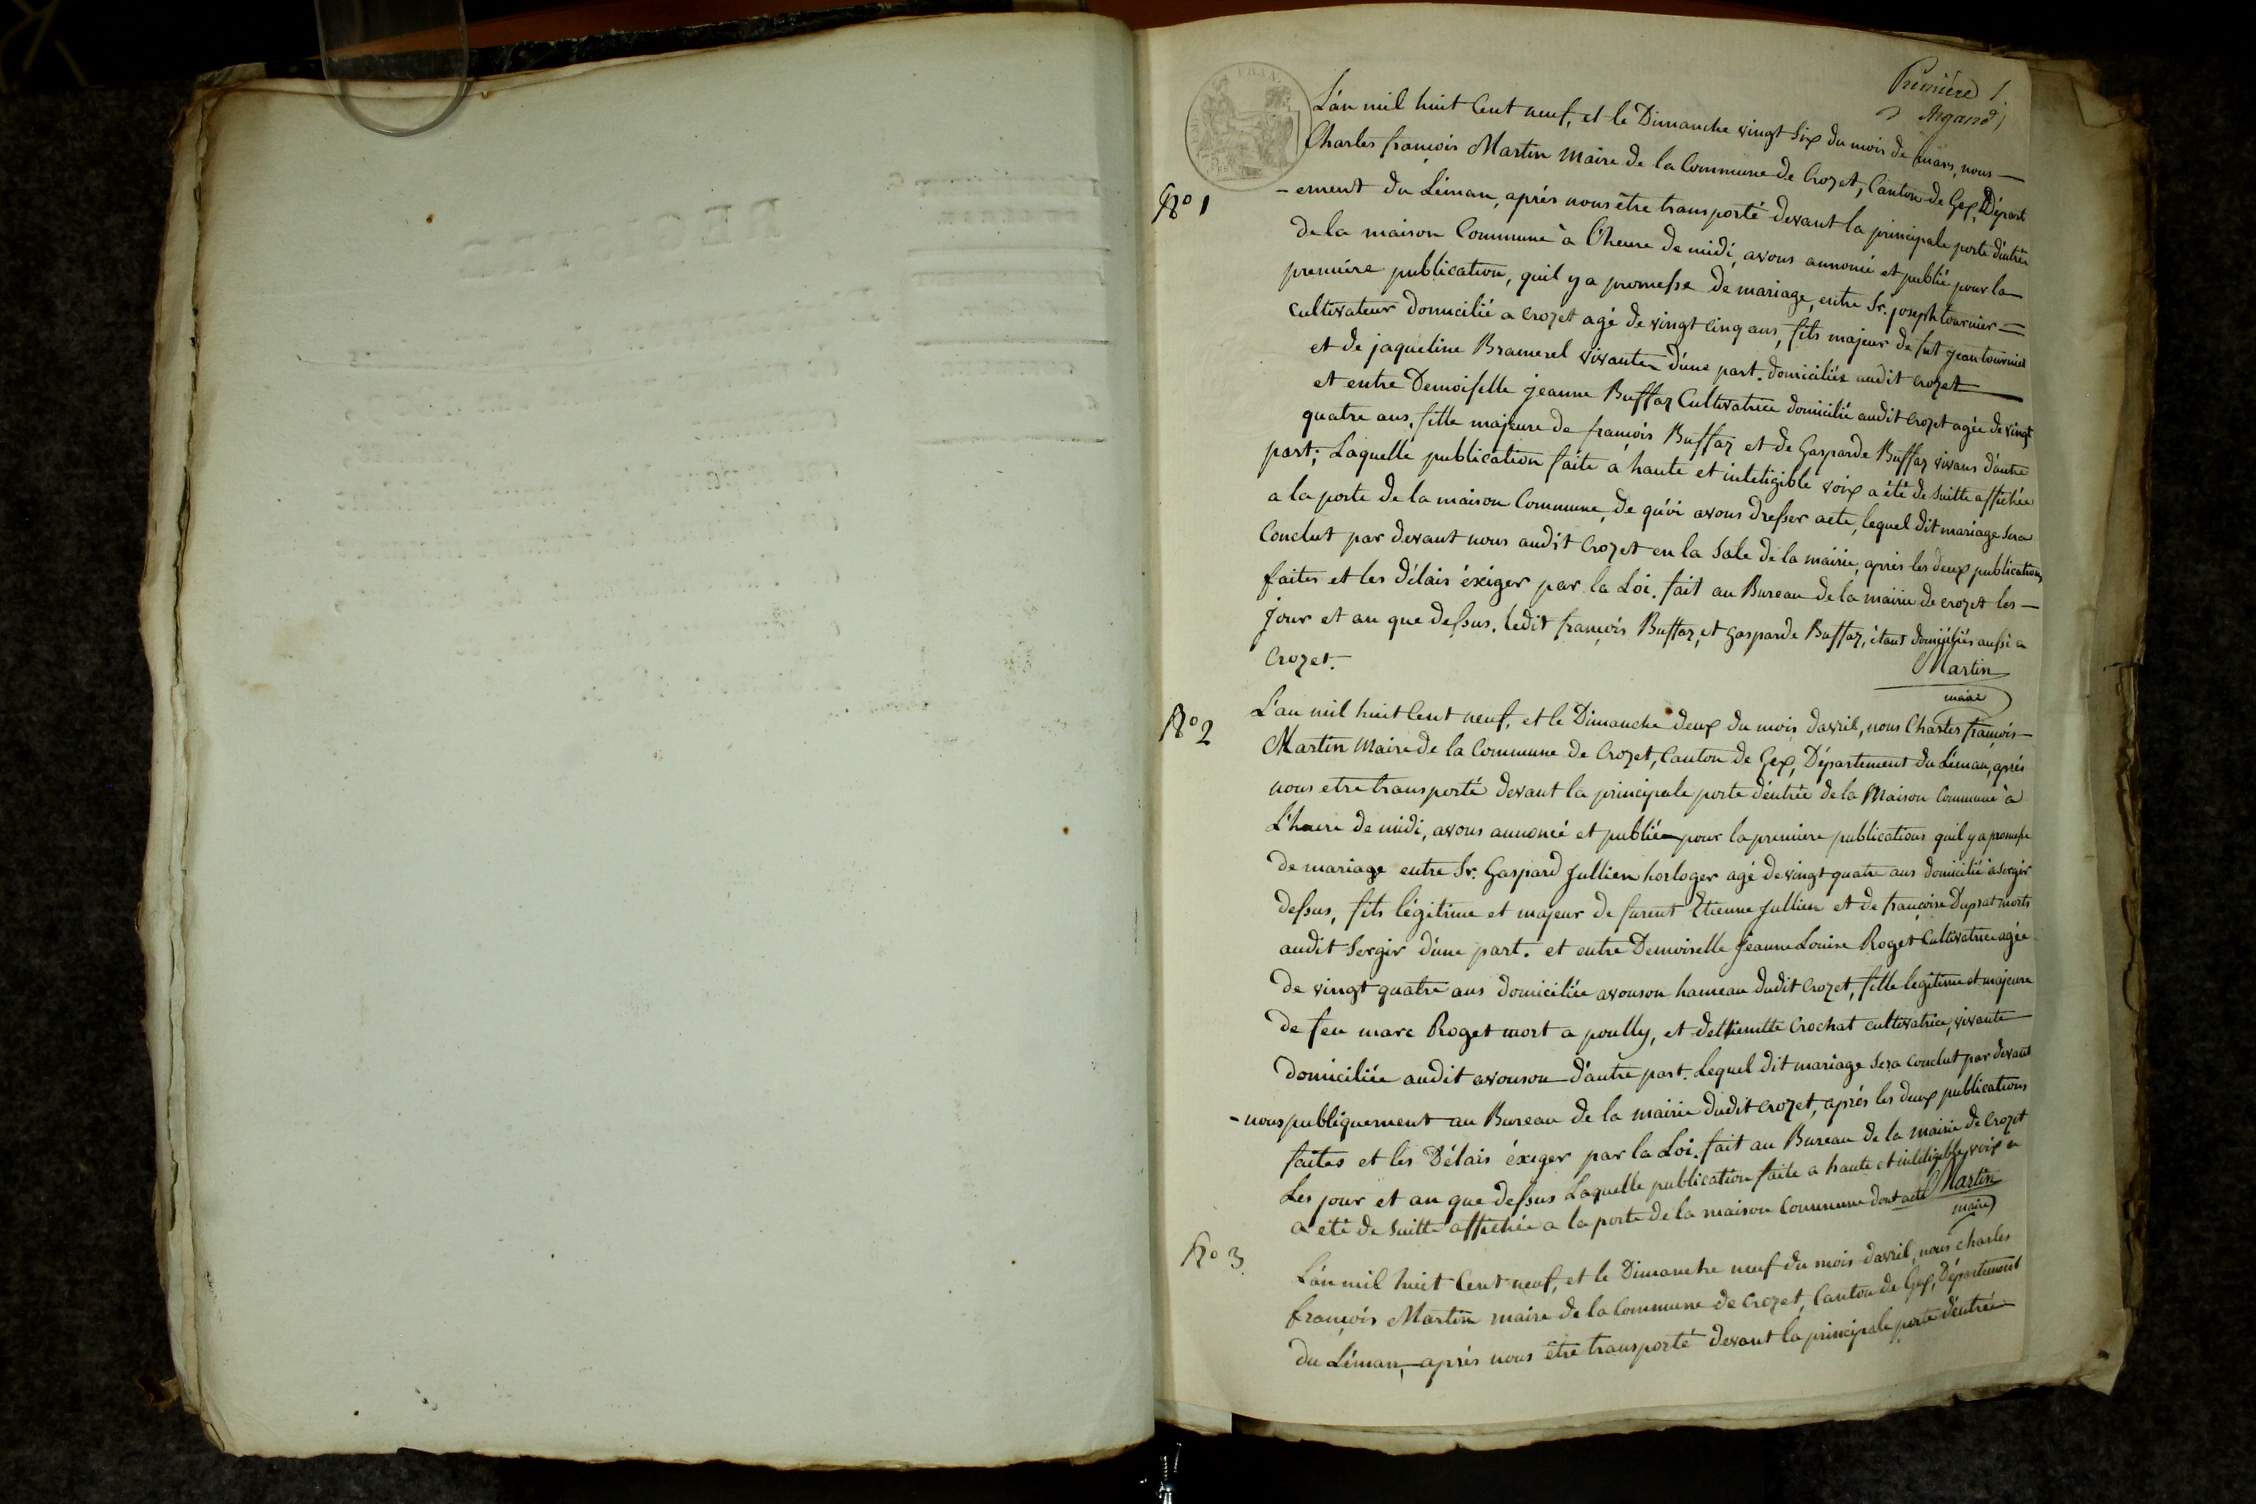 Première 1.
Argand
L'an mil huit Cent neuf, et le Dimanche vingt Six du mois de mars, nous —
Charles françois Martin Maire de la Commune de Crozet, Canton de Gex, Départ
No 1
-ement du Léman, aprés nous être transporté devant la principale porte d'entrée
de la maison Commune à l'heure de midi, avons annoncé et publié pour la
premiére publication, quil y a promesse de mariage, entre Sr. joseph tournier =
cultivateur domicilié a Crozet agé de vingt cinq ans, fils majeur de fut jean tournier
et de jaqueline Bramerel vivante d'une part. domiciliés audit crozet —
et entre Demoiselle jeanne Buffaz Cultivatrice domicilié audit Crozet agée de vingt
quatre ans, fille majeure de françois Buffaz et de Gasparde Buffaz vivans d'autre
part; Laquelle publication faite a haute et inteligible voix a été de Suitte affichée
a la porte de la maison Commune, de qu'oi avons dresser acte, lequel dit mariage Sera
Conclut par devant nous audit Crozet en la Sale de la mairie, aprés les deux publications
faites et les délais éxiger par la Loi. fait au Bureau de la mairie de crozet les —
jour et an que dessus. ledit françois Buffaz, et Gasparde Buffaz, étant domiciliés aussi a
Crozet.
Martin
maire
No 2
L'an mil huit Cent neuf, et le Dimanche deux du mois davril, nous Charles françois —
Martin Maire de la Commune de Crozet, Canton de Gex, Département du Léman, aprés
nous etre transporté devant la principale porte d'entrée de la Maison Commune à
L'heure de midi, avons annoncé et publié pour la premiere publications quil y a promesse
de mariage entre Sr. Gaspard Jullien horloger agé de vingt quatre ans domicilié a Sergir
dessus, fils légitime et majeur de furent Etienne Jullien et de françoise Duprat morts
audit Sergir d'une part. et entre Demoiselle Jeanne Louise Roget Cultivatrice agée
de vingt quatre ans domiciliée avouson hameau dudit Crozet, fille legitime et majeure
de feu marc Roget mort a poully, et dettiennette Crochat cultivatrice, vivante
domiciliée audit avouson d'autre part. Lequel dit mariage Sera Conclut par devant
-nous publiquement au Bureau de la mairie dudit Crozet, aprés les deux publications
faites et les Délais éxiger par la Loi. fait au Bureau de la mairie de Crozet
Les jour et an que dessus Laquelle publication faite a haute et inteligible voix a
a été de Suitte affichée a la porte de la maison Commune dont acte Martin
maire
No 3
L'an mil huit Cent neuf, et le Dimanche neuf du mois davril, nous charles
françois Martin maire de la Commune de crozet, Canton de Gex, Département
du Léman, aprés nous être transporté devant la principale porte d'entrée